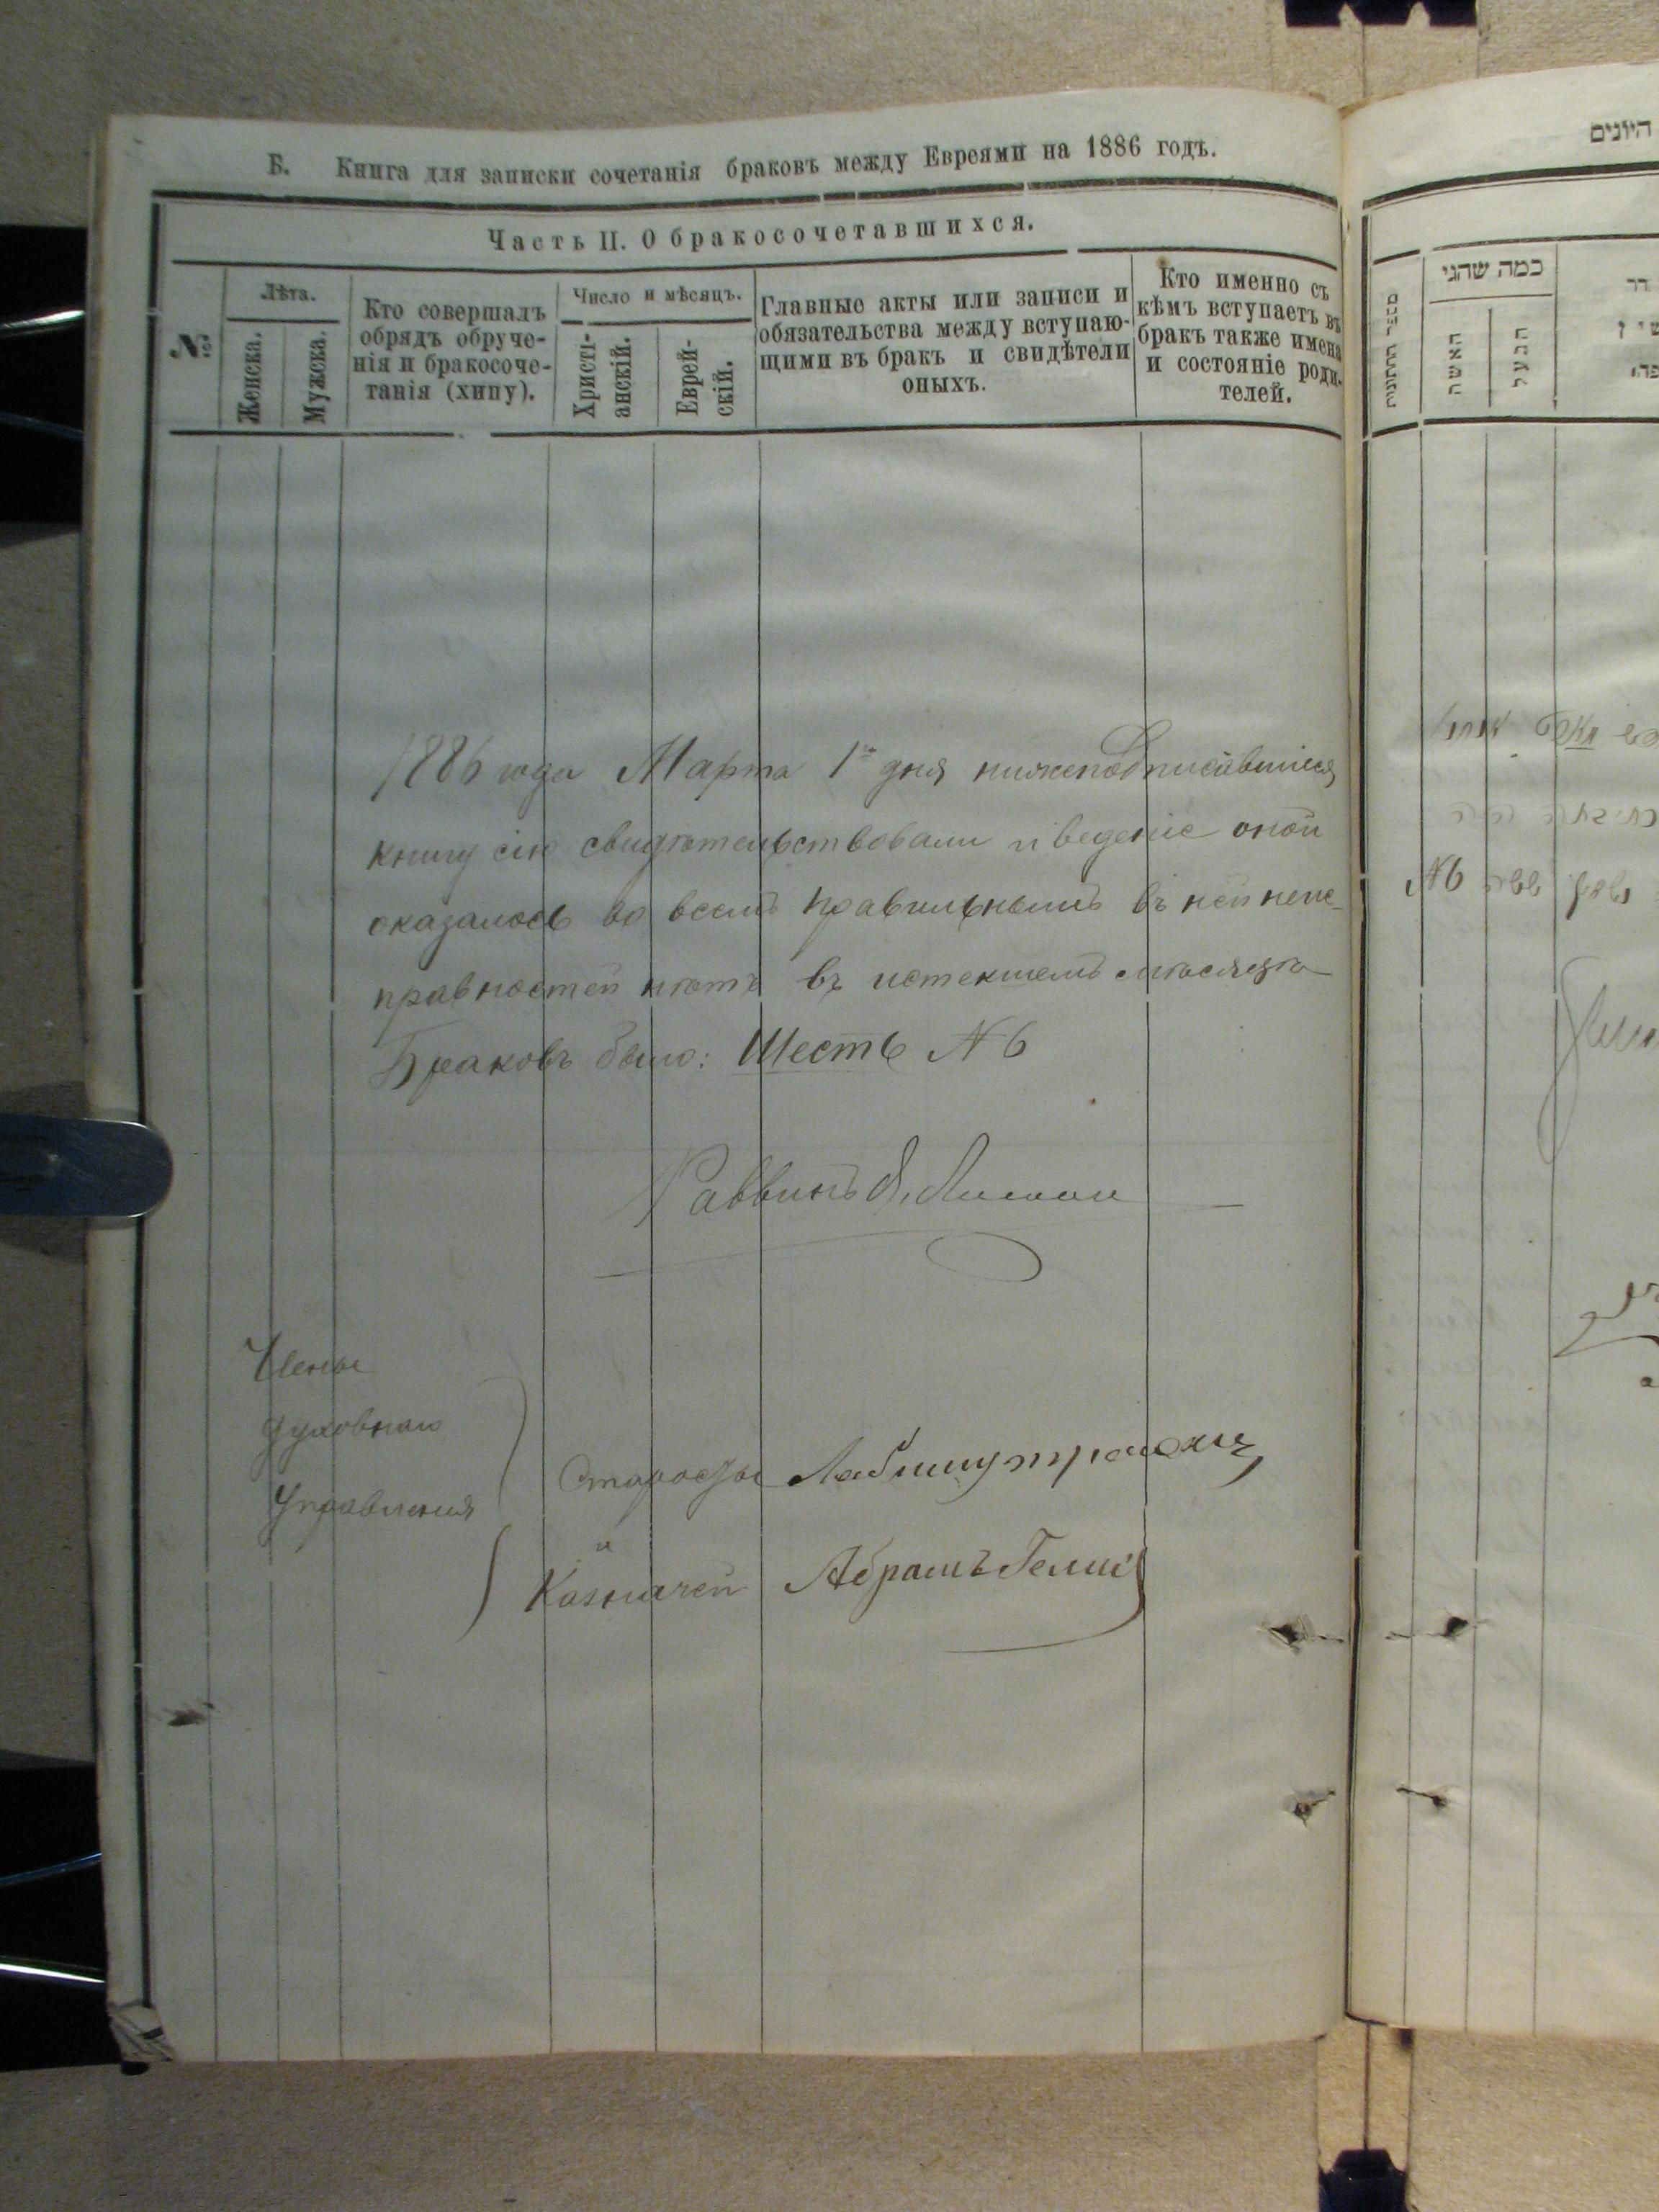 Б. Книга для записки сочетанія браковъ между Евреями на 1886 годъ.
Часть II. О бракосочетавшихся.
№
Лѣта.
Женска.
Мужска.
Кто совершалъ
обрядъ обруче-
нія и бракосоче-
танія (хипу).
Число и мѣсяцъ.
Христі-
анскій.
Еврей-
скій.
Главные акты или записи и
обязательства между вступаю-
щими въ бракъ и свидѣтели
оныхъ.
Кто именно съ
кѣмъ вступаетъ въ
бракъ также имена
и состояніе роди-
телей.
1886 года Марта 1го дня нижеподписавшіеся
книгу сію свидѣтельствовали и веденіе оной
оказалось во всемъ правильнымъ въ ней неис-
правностей нѣтъ въ истекшемъ мѣсяцѣ
Браковъ было: Шесть №6
Раввинъ
Члены
Духовнаго
Управленія
Старосты
и
Казначей Абрамъ
היונים
כמה שהגי
האשה
הבעל
№6